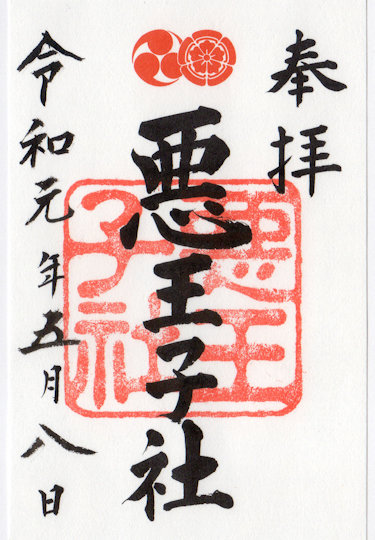 奉拝
悪王子社
悪王子社
令和元年五月八日